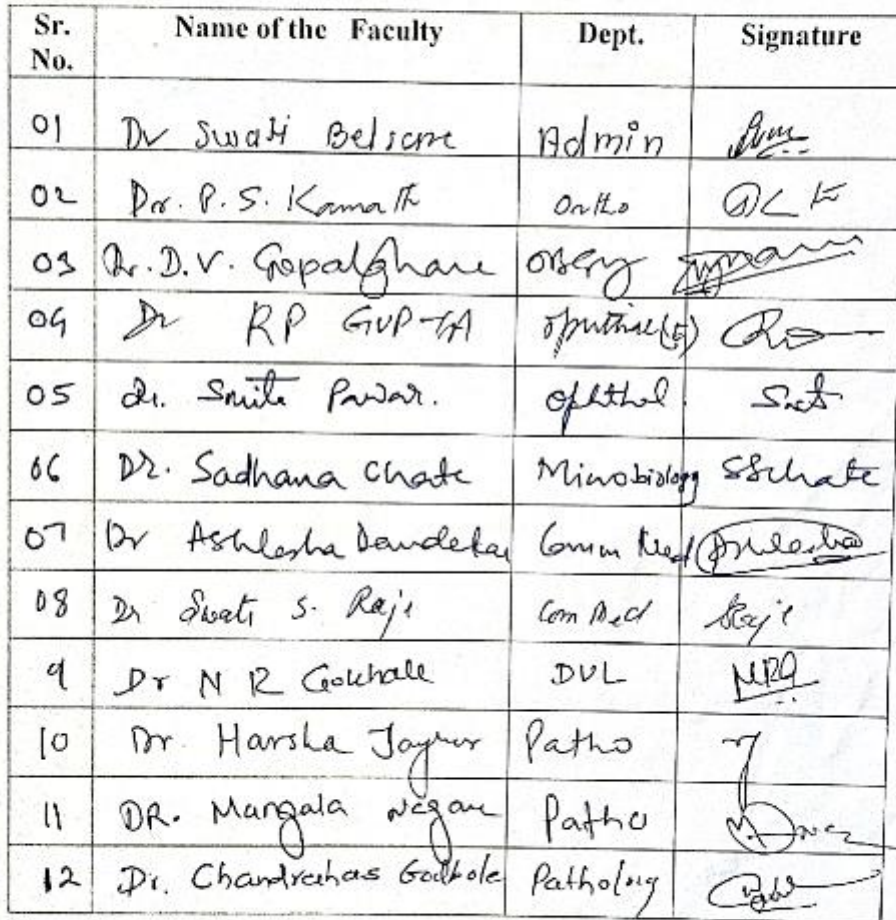 Sr. No. Name of the Faculty Dept. Signature
01 Dr Swati Belsare Admin
02 Dr. P. S. Kamath Ortho
03 Dr. D. V. Gopalghare OBGY
04 Dr RP GUPTA
05 Dr. Smita Pawar. Ophthal.
06 DR. Sadhana Chate Microbiology SSChate
07 Dr Ashlesha Dandekar Comm Med Ashlesha
08 Dr Swati S. Raje Com Med Raje
9 Dr N R Gokhale DVL NRG
10 Dr. Harsha Patho
11 DR. Mangala Patho
12 Dr. Chandrahas Godbole Pathology